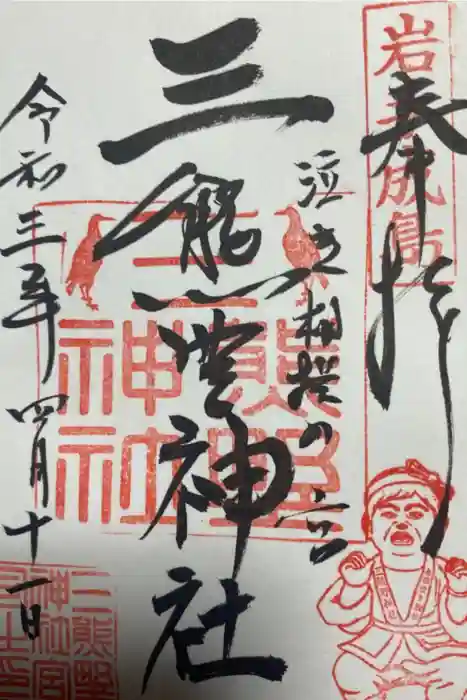 奉拝
岩手成島
泣き相撲の宮
三熊野神社
三熊野神社
令和三年四月十一日
三熊野
神社宮
司之印